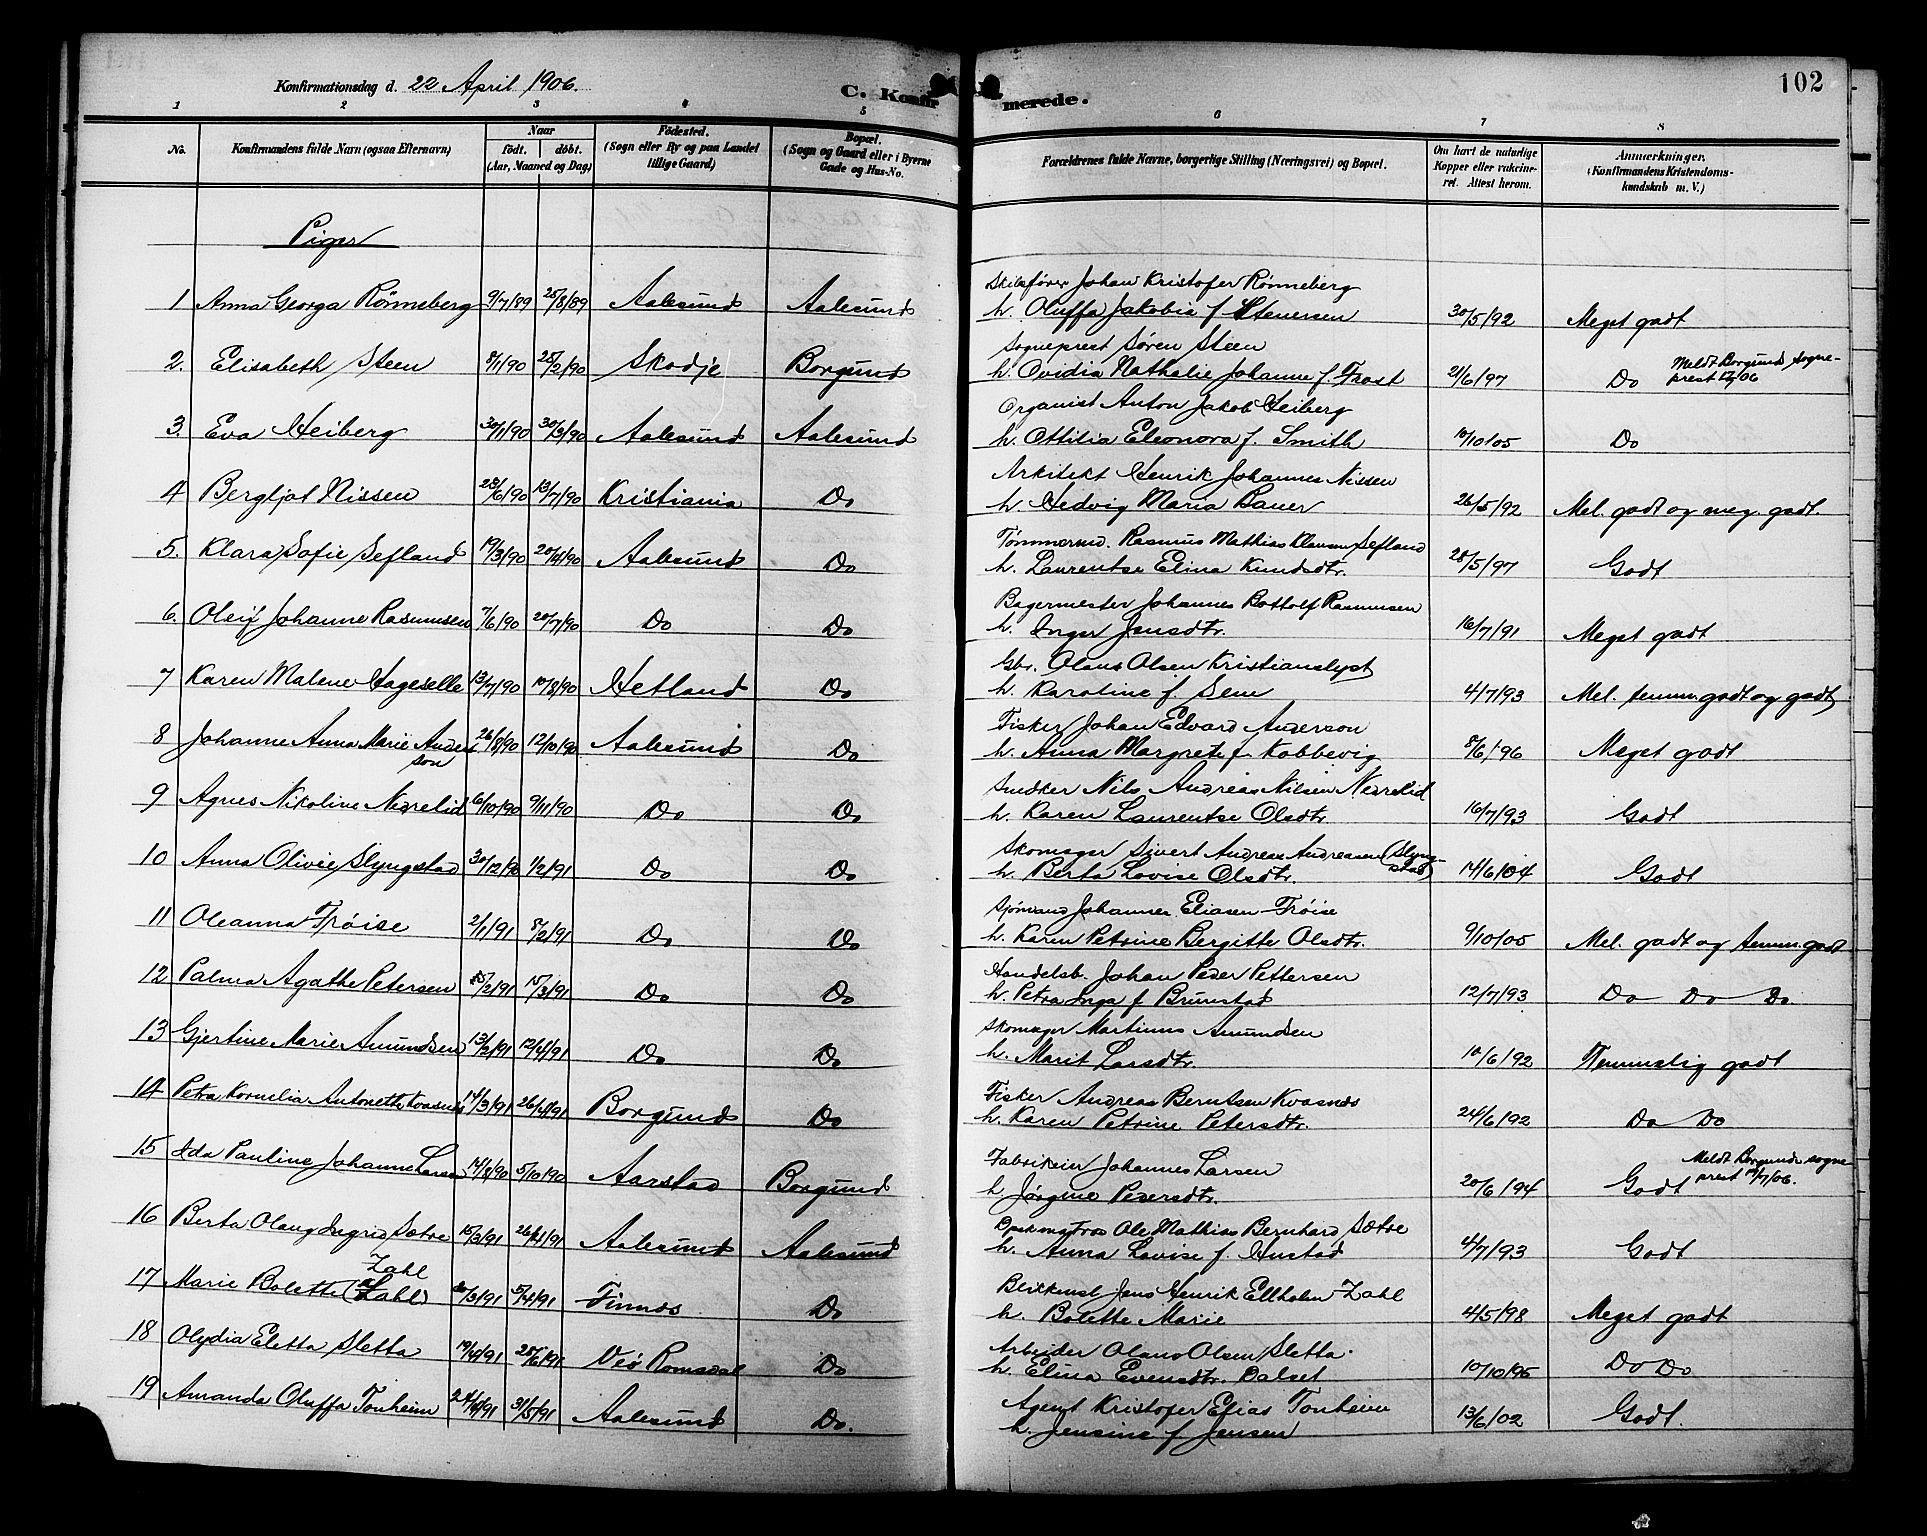 Konfirmationsdag d. 22 April 1906.
C. Konfirmerede.
102
1 2 3 4 5 6 7 8
No.
Konfirmandens fulde Navn (ogsaa Efternavn)
Naar
født. døbt.
(Aar, Maaned og Dag)
Fødested.
(Sogn eller By og paa Landet
tillige Gaard)
Bopæl.
(Sogn og Gaard eller i Byerne
Gade og Hus-No.
Forældrenes fulde Navne, borgerlige Stilling (Næringsvei) og Bopæl.
Om havt de naturlige
Kopper eller vakcine-
ret. Attest herom.
Anmærkninger.
(Konfirmandens Kristendoms-
kundskab m. V.)
Piger
Johan Kristofer Rønneberg
1 Anna Georga Rønneberg 9/7/89 25/8/89 Aalesund Aalesund h. Oluffa Jakobia f Stenersen 30/5/92 Meget godt
Sogneprest Søren Steen
2. Elisabeth Steen 8/1/90 25/2/90 Skodje Borgund h. Ovidia Nathalie Johanne f. Frost 21/6/97 Do Meldt Borgund sogne-
prest /06
Organist Anton Jakob Heiberg
3. Eva Heiberg 30/1/90 30/3/90 Aalesund Aalesund h. Ottilia Eleonora f. Smith 10/10/05 Do
Arkitekt Henrik Johannes Nissen
4 Bergljot Nissen 23/6/90 13/7/90 Kristiania Do h. Hedvig Maria Bauer 26/5/92 Mel. godt og meg. godt.
Tømmermd. Rasmus Mathias Klausen Sefland
5. Klara Sofie Sefland 19/3/90 20/4/90 Aalesund Do h. Laurentse Elina Knudsdtr. 28/5/97 Godt
Bagermester Johannes Bottolf Rasmusen
6. Johanne Rasmusen 7/6/90 20/7/90 Do Do h. Inger Jensdtr. 16/7/91 Meget godt
Gbr. Olaus Olsen Kristianslyst
7 Karen Malene Hageselle 13/7/90 10/8/90 Hetland Do h. Karoline f. Sem 4/7/93 Mel. temm. godt og godt
Fisker Johan Edvard Anderson
8 Johanne Anna MarieAnder-
son 26/8/90 12/10/90 Aalesund Do h. Anna Margrete f Kobbevig 8/6/96 Meget godt
Snedker Nils Andreas Nilsen Nedrelid
9 Agnes Nikoline Nedrelid 6/10/90 9/11/90 Do Do h. Karen Laurentse Olsdtr. 16/7/93 Godt
Skomager Sivert Andreas Andreasen (Slyng-
stad)
10 Anna Olivie Slyngstad 30/12/90 1/2/91 Do Do h. Berta Lovise Olsdtr. 14/6/04 Godt
Sjømand Johannes Eliasen Frøise
11 Oleanna Frøise 2/1/91 8/2/91 Do Do h. Karen Petrine Bergitte Olsdtr. 9/10/05 Mel. godt og temm. godt
Handelsb. Johan Peder Pettersen
12 Palma Agathe Petersen /2/91 15/3/91 Do Do h. Petra Inga f Brunstad 12/7/93 Do Do Do
Skomager Martinus Amundsen
13 Gjertine Marie Amundsen 13/2/91 12/4/91 Do Do h. Marit Larsdtr. 10/6/92 Temmelig godt
Fisker Andreas Berntsen Kvasnes
14 Petra Kornelia Antonette Kvasnes 14/3/91 26/4/91 Borgund Do h. Karen Petrine Petersdtr. 24/6/92 Do Do
Fabrikeier Johannes Larsen
15 Ida Pauline Johanne Larsen 14/8/90 5/10/90 Aarstad Borgund h Jørgine Pedersdtr. 20/6/94 Godt Meldt Borgunds sogne-
prest /7/06.
Ole Mathias Bernhard Sætre
16 Berta Olaug Ingrid Sætre 15/3/91 26/4/91 Aalesund Aalesund h. Anna Lovise f. Hustad 4/7/93 Godt
Zahl
Jens Henrik Ellholm Zahl
17 Marie Bolette (Zahl) /3/91 5/4/91 Finnes Do h. Bolette Marie 4/5/98 Meget godt
Arbeider Olaus Olsen Sletta.
18 Olydia Eletta Sletta 19/4/91 28/6/91 Veø Romsdal Do h. Elina Evensdtr. Dalset 10/10/95 Do Do
Agent Kristofer Elias Tonheim
19 Amanda Oluffa Tonheim 24/4/91 31/5/91 Aalesund Do. h. Jensine f Jensen 13/6/02 Godt.